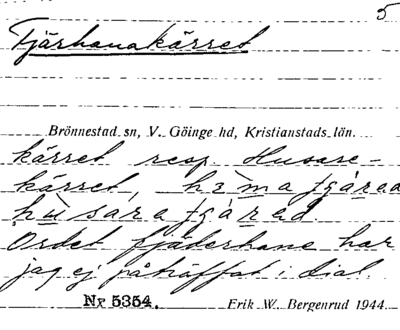 5
Tjärhanakärret
Brönnestad sn, V. Göinge hd, Kristianstads län.
kärret resp. Husare-
kärret,
Ordet fjäderhane har
jag ej påträffat i dial.
Nr 5354. Erik W. Bergenrud 1944.